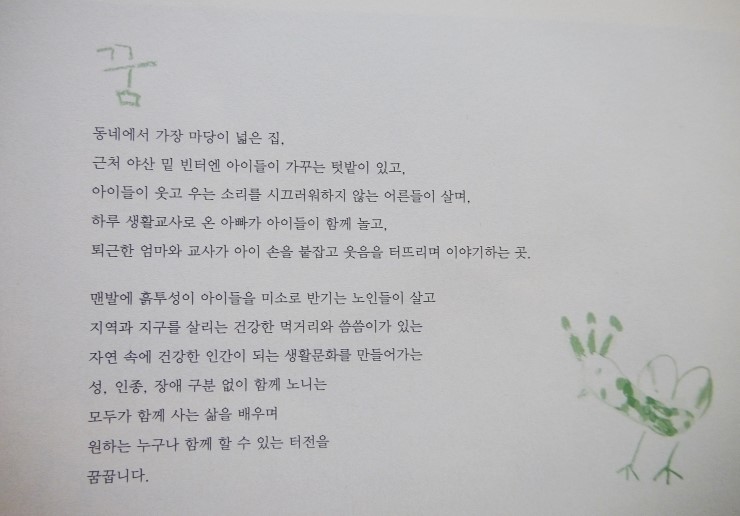 꿈
동네에서 가장 마당이 넓은 집,
근처 야산 밑 빈터엔 아이들이 가꾸는 텃밭이 있고,
아이들이 웃고 우는 소리를 시끄러워하지 않는 어른들이 살며,
하루 생활교사로 온 아빠가 아이들이 함께 놀고,
퇴근한 엄마와 교사가 아이 손을 붙잡고 웃음을 터뜨리며 이야기하는 곳.
맨발에 흙투성이 아이들을 미소로 반기는 노인들이 살고
지역과 지구를 살리는 건강한 먹거리와 씀씀이가 있는
자연 속에 건강한 인간이 되는 생활문화를 만들어가는
성, 인종, 장애 구분 없이 함께 노니는
모두가 함께 사는 삶을 배우며
원하는 누구나 함께 할 수 있는 터전을
꿈꿉니다.